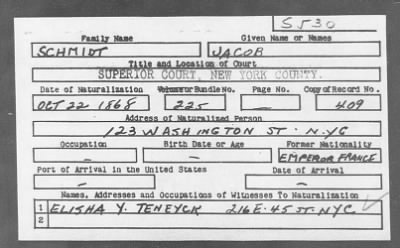 S530
Family Name Given Name or Names
SCHMIDT JACOB
Title and Location of Court
SUPERIOR COURT, NEW YORK COUNTY.
Date of Naturalization Volume or Bundle No. Page No. Copy of Record No.
OCT 22 1868 225 — 409
Address of Naturalized Person
123 WASHINGTON ST. N.Y.C
Occupation Birth Date or Age Former Nationality
— — EMPEROR FRANCE
Port of Arrival in the United States Date of Arrival
— —
Names, Addresses and Occupations of Witnesses To Naturalization
1 ELISHA Y. TENEYCK 216 E. 45 ST. NYC
2